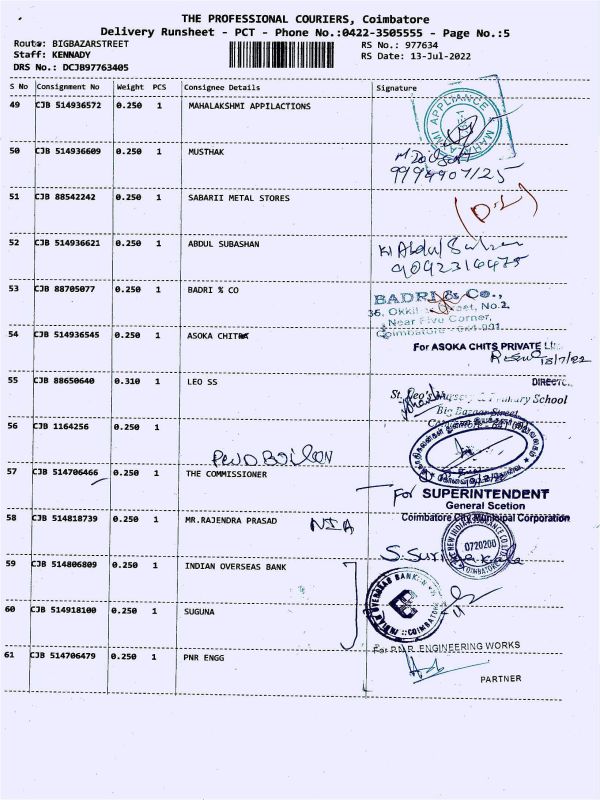 THE PROFESSIONAL COURIERS, Coimbatore
Delivery Runsheet - PCT - Phone No.:0422-3505555 - Page No.:5
Route: BIGBAZARSTREET
RS No.: 977634
Staff: KENNADY
RS Date: 13-Jul-2022
DRS No.: DCJB97763405
S No Consignment No Weight PCS Consignee Details Signature
49 CJB 514936572 0.250 1 MAHALAKSHMI APPILACTIONS
APPLIANCE
50 CJB 514936609 0.250 1 MUSTHAK
51 CJB 88542242 0.250 1 SABARII METAL STORES
52 CJB 514936621 0.250 1 ABDUL SUBASHAN
K. Abdul
9092316475
53 CJB 88705077 0.250 1 BADRI % CO
BADRI & Co.,
36, Okkil Street, No.2,
Near Five Corner,
Coimbatore - 641 001.
54 CJB 514936545 0.250 1 ASOKA CHITRA
For ASOKA CHITS PRIVATE
DIRECTOR
55 CJB 88650640 0.310 1 LEO SS
St. Leo's Nursery & Primary School
Big Bazaar Street
56 CJB 1164256 0.250 1
57 CJB 514706466 0.250 1 THE COMMISSIONER
For SUPERINTENDENT
General Scetion
Coimbatore City Municipal Corporation
58 CJB 514818739 0.250 1 MR.RAJENDRA PRASAD NIA
0720200
COIMBATORE
59 CJB 514806809 0.250 1 INDIAN OVERSEAS BANK
INDIAN OVERSEAS BANK
COIMBATORE
60 CJB 514918100 0.250 1 SUGUNA
For P.N.R. ENGINEERING WORKS
61 CJB 514706479 0.250 1 PNR ENGG
PARTNER